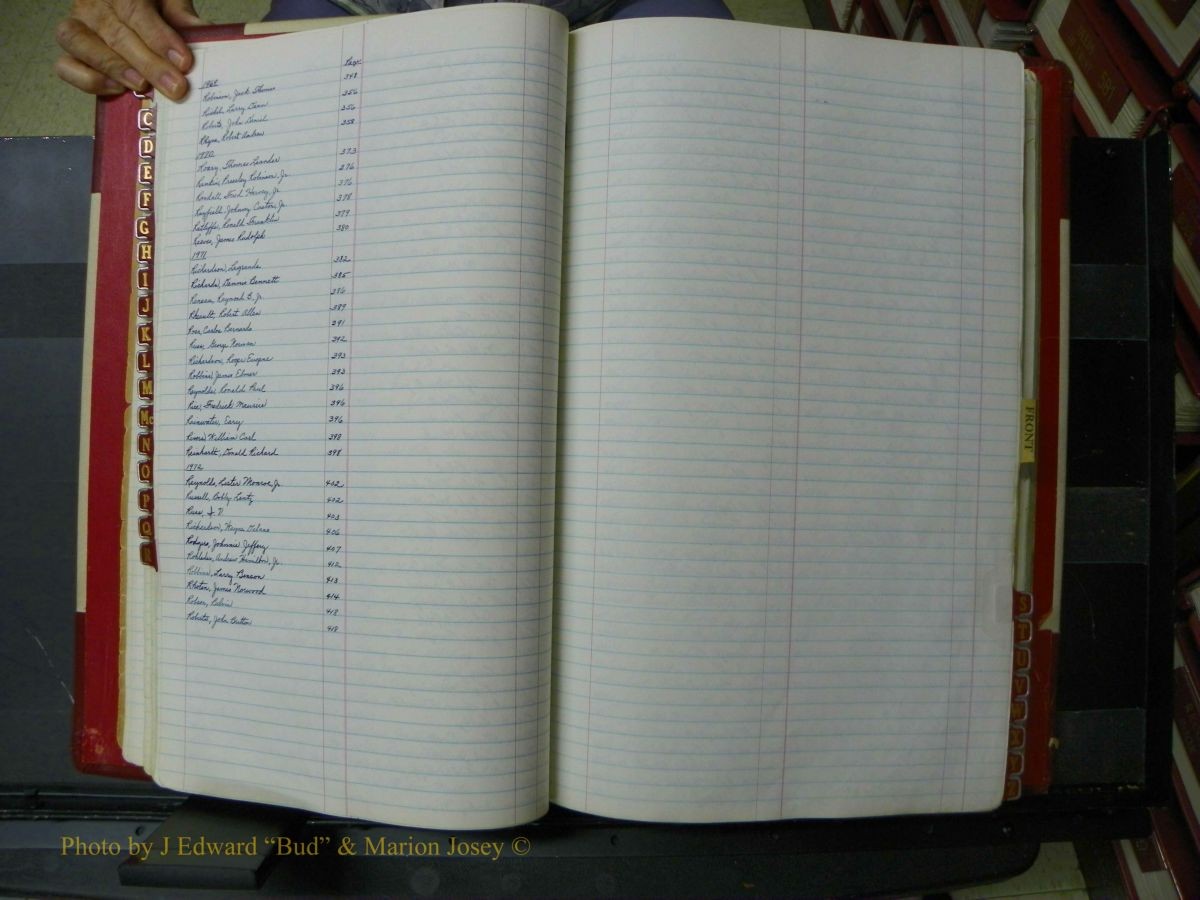 Page
1969
Robinson, Jack Thomas 348
Larry Dean 356
Roberts, John Daniel 356
Rhyne, Robert Andrew 358
1970
Thomas Leander 373
Rankin, Pressley Robinson, Jr. 276
Randall, Fred Harvey, Jr. 376
Rayfield, Johnny Caston, Jr. 378
Ratliffe, Ronald Franklin 379
Reeves, James Rudolph 380
1971
Richardson, Legrande 382
Richards, Dennis Bennett 385
Raymond B. Jr. 386
Rheault, Robert Allen 389
Ross, Carlos Bernardo 391
Russ, George Norman 392
Richardson, Roger Eugene 393
Robbins, James Elmer 393
Reynolds, Ronald Paul 396
Rice, Fredrick Maurice 396
Rainwater, Cary 396
William Carl 398
Reinhardt, Donald Richard 398
1972
Reynolds, Lester Monroe, Jr. 402
Russell, Bobby Lentz 402
Russ, J. D. 403
Richardson, Wayne 406
Rodgers, Johnnie Jeffery 407
Andrew Hamilton, Jr. 412
Robbins, Larry Benson 413
Rhoten, James Norwood 414
418
Roberts, John Britton 418
C
D
E
F
G
H
I
J
K
L
M
Mc
N
O
P
Q
R
FRONT
S
T
U
V
W
X
Y
Z
Photo by J Edward “Bud” & Marion Josey ©